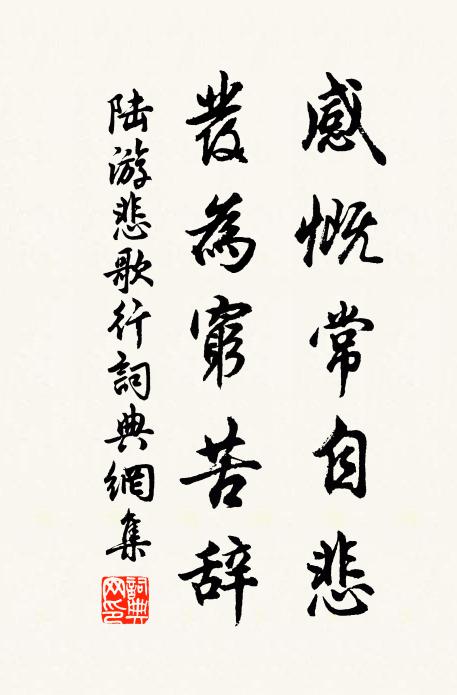 感慨常自悲
發為窮苦辞
陸游悲歌行詞典網集
詞典網印